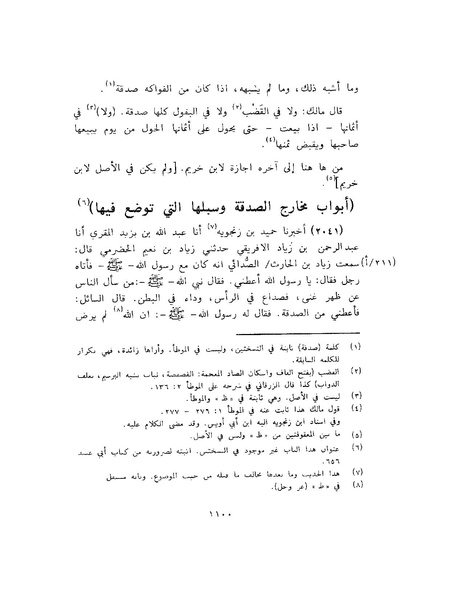 وما أشبه ذلك، وما لم يشبهه، اذا كان من الفواكه صدقة(١).
قال مالك: ولا في القَضْب(٢) ولا في البقول كلها صدقة. (ولا)(٣) في
أثمانها – اذا بيعت – حتى يحول على أثمانها الحول من يوم يبيعها
صاحبها ويقبض ثمنها(٤).
من ها هنا إلى آخره اجازة لابن خريم. [ولم يكن في الأصل لابن
خريم](٥).
(أبواب مخارج الصدقة وسبلها التي توضع فيها)(٦)
(٢٠٤١) أخبرنا حميد بن زنجويه(٧) أنا عبد الله بن يزيد المقري أنا
عبدالرحمن بن زياد الافريقي حدثني زياد بن نعيم الحضرمي قال:
(٢١١/أ) سمعت زياد بن الحارث/ الصُّدائي انه كان مع رسول الله – ﷺ – فأتاه
رجل فقال: يا رسول الله أعطني. فقال نبي الله – ﷺ –: من سأل الناس
عن ظهر غنى، فصداع في الرأس، وداء في البطن. قال السائل:
فأعطني من الصدقة. فقال له رسول الله – ﷺ –: ان الله(٨) لم يرض
(١) كلمة (صدقة) ثابتة في النسختين، وليست في الموطأ. وأراها زائدة، فهي تكرار
للكلمة السابقة.
(٢) القضب (بفتح القاف واسكان الضاد المعجمة: الفصفصة، نبات يشبه البرسيم، يعلف
الدواب) كذا قال الزرقاني في شرحه على الموطأ ٢: ١٣٦.
(٣) ليست في الأصل. وهي ثابتة في «ظ» والموطأ.
(٤) قول مالك هذا ثابت عنه في الموطأ ١: ٢٧٦ – ٢٧٧.
وفي اسناد ابن زنجويه اليه ابن أبي أويس. وقد مضى الكلام عليه.
(٥) ما بين المعقوفتين من «ظ» وليس في الأصل.
(٦) عنوان هذا الباب غير موجود في النسختين. أثبته لضرورته من كتاب أبي عبيد
٦٥٦.
(٧) هذا الحديث وما بعدها مخالف ما قبله من حيث الموضوع. وبابه مستقل
(٨) في «ظ» (عز وجل).
١١٠٠